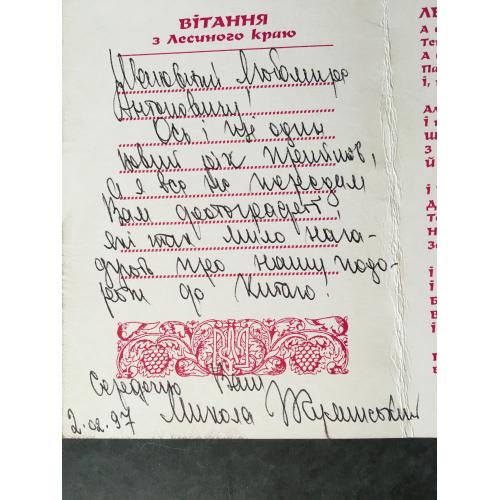 ВІТАННЯ
з Лесиного краю
Шановний Любомире
Антоновичу!
Ось і ще один
новий рік прийшов,
А я все не передам
Вам фотографії,
які так мило нага-
дують про нашу подо-
рож до Китаю.
Сердечно Ваш
Микола Жулинський
2.02.97
А
Те
А
Па
І,